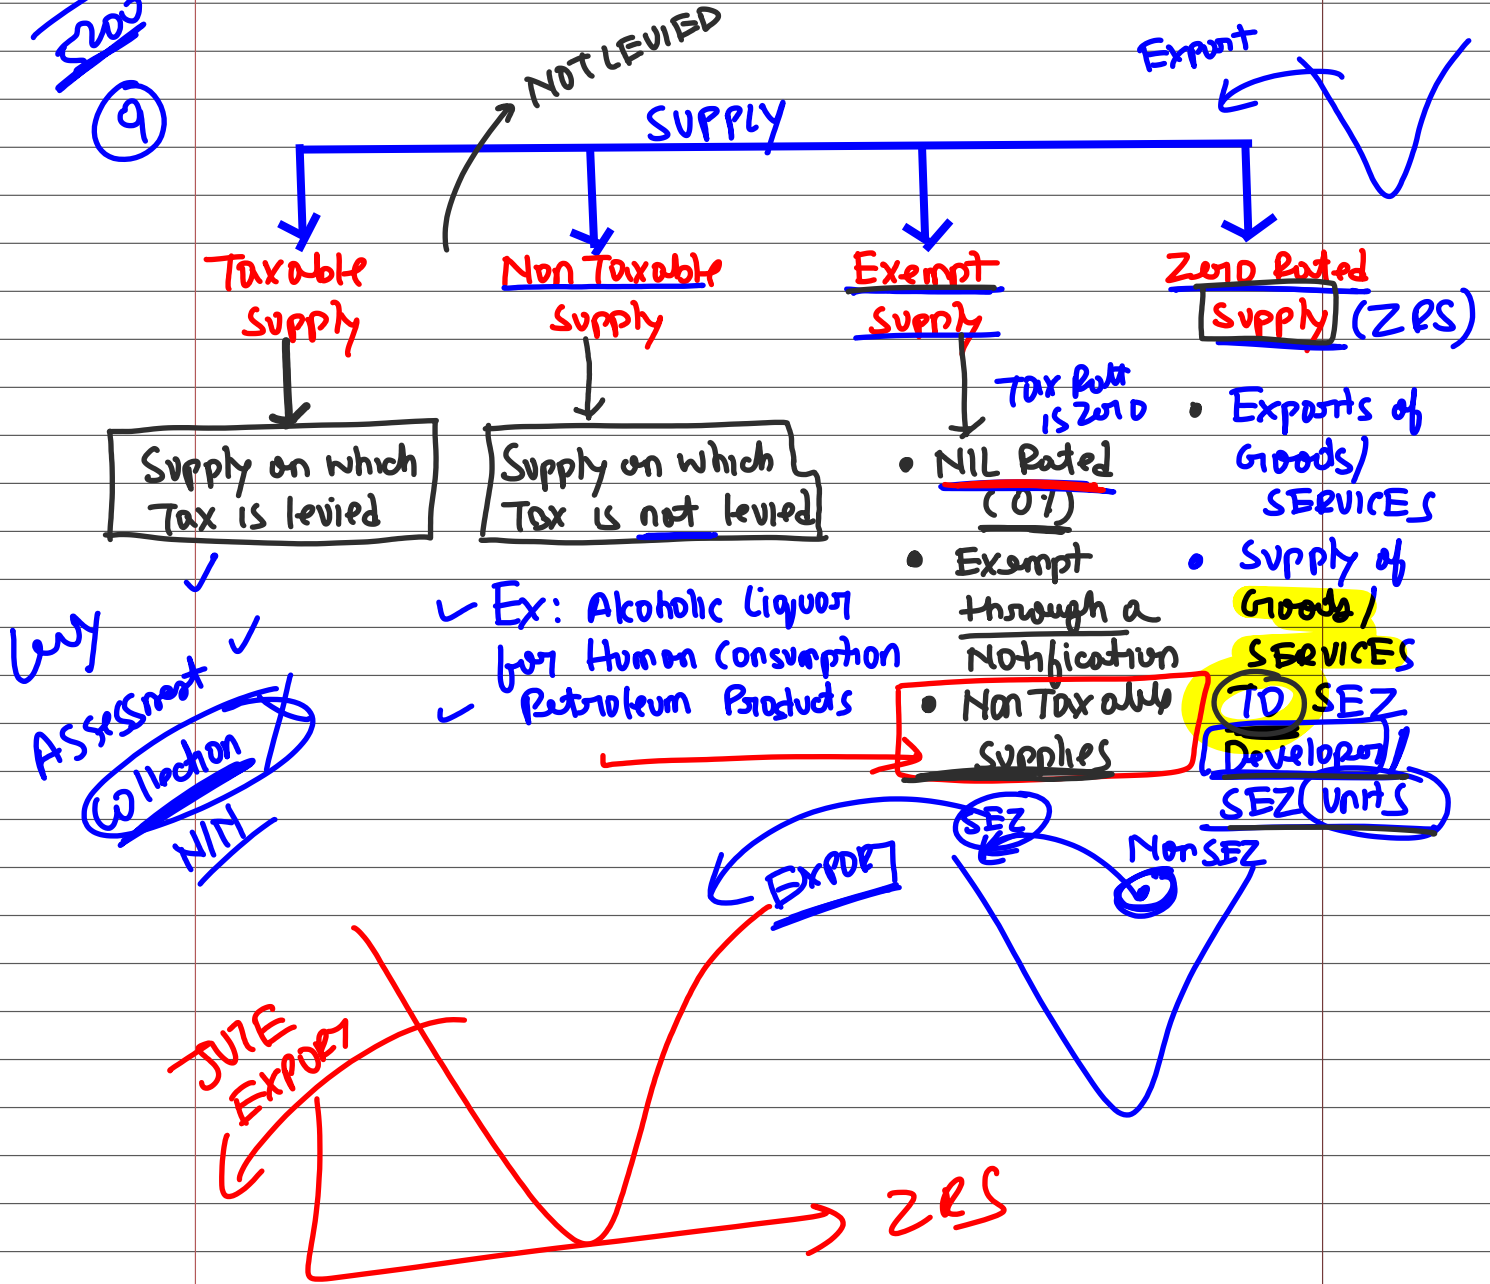 200
9
NOT LEVIED
Export
SUPPLY
Taxable
Supply
Non Taxable
Supply
Exempt
Supply
Zero Rated
Supply (ZRS)
Supply on which
Tax is levied
Supply on which
Tax is not levied
Tax Rate
is zero
• NIL Rated
(0%)
• Exempt
through a
Notification
• Non Taxable
supplies
• Exports of
Goods/
SERVICES
• Supply of
Goods/
SERVICES
TO SEZ
Developer/
SEZ Units
Ex: Alcoholic Liquor
for Human Consumption
Petroleum Products
Levy
Assessment
Collection
N/N
SEZ
Non SEZ
EXPORT
JUTE
EXPORT
ZRS